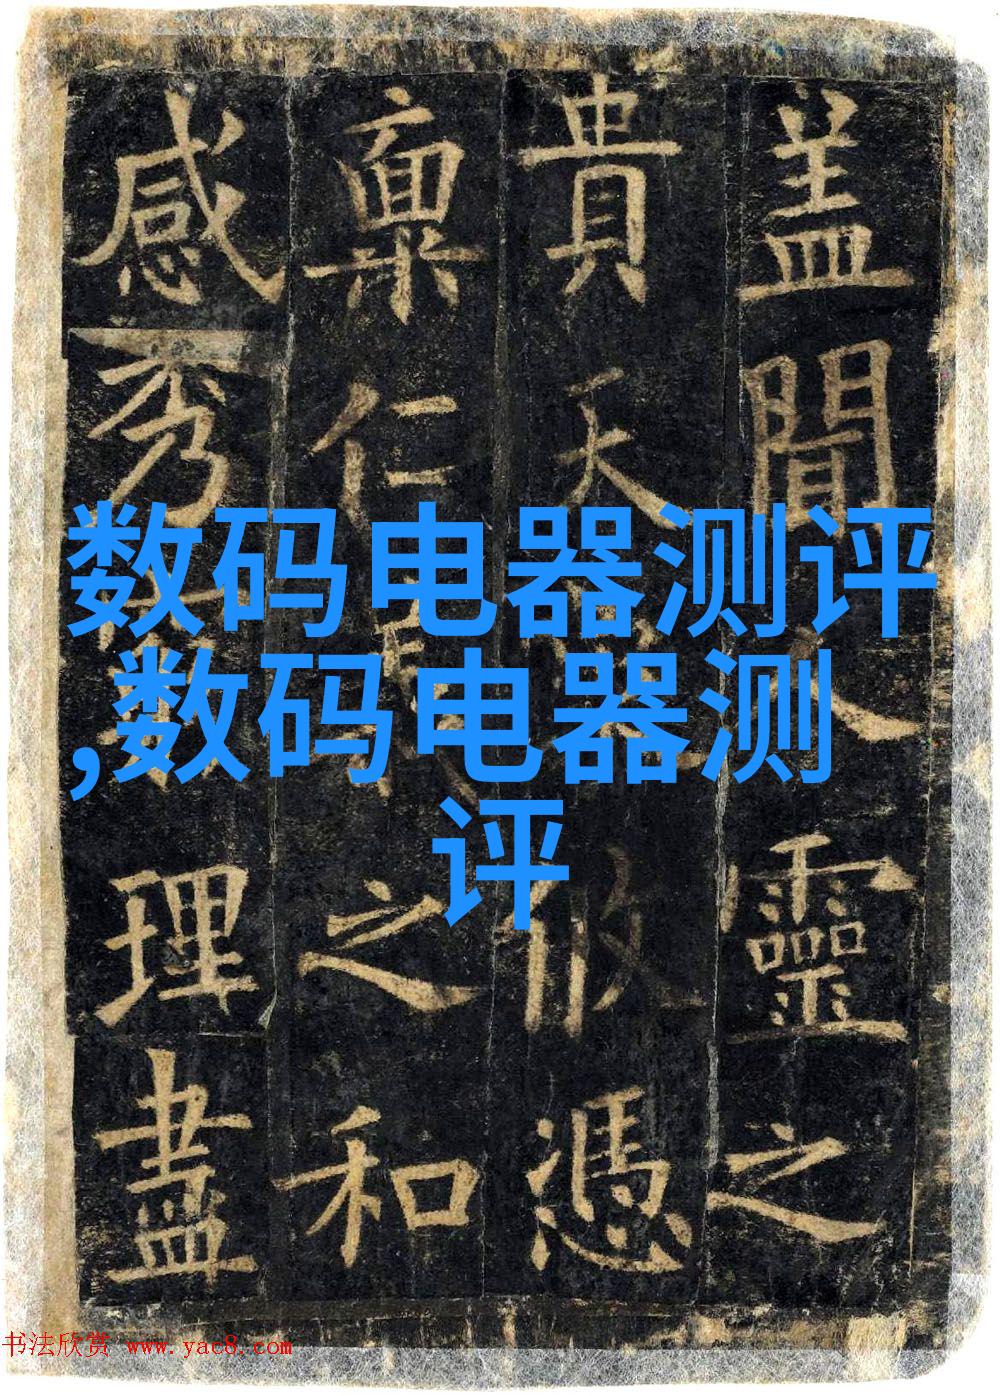 盖聞靈之
貴天攸憑
稟仁之和
感秀理盡
数码电器测评
,数码电器测
评
书法欣赏 www.yac8.com